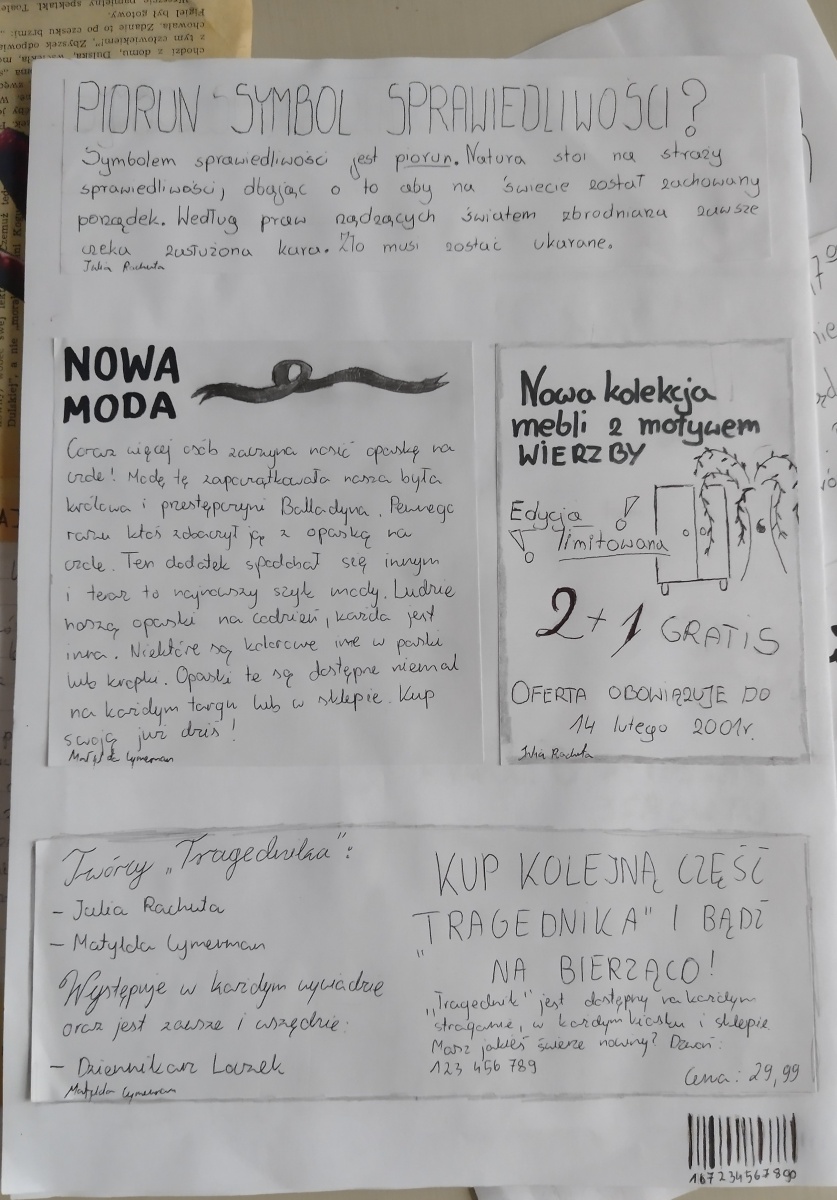 PIORUN - SYMBOL SPRAWIEDLIWOŚCI?
Symbolem sprawiedliwości jest piorun. Natura stoi na straży
sprawiedliwości, dbając o to aby na świecie został zachowany
porządek. Według praw rządzących światem zbrodniarza zawsze
czeka zasłużona kara. Zło musi zostać ukarane.
Julia Rachuta
NOWA
MODA
Coraz więcej osób zaczyna nosić opaskę na
czole! Modę tę zapoczątkowała nasza była
królowa i przestępczyni Balladyna. Pewnego
razu ktoś zobaczył ją z opaską na
czole. Ten dodatek spodobał się innym
i teraz to najnowszy szyk mody. Ludzie
noszą opaski na codzień, każda jest
inna. Niektóre są kolorowe inne w paski
lub kropki. Opaski te są dostępne niemal
na każdym targu lub w sklepie. Kup
swoją już dziś!
Matylda Cymerman
Nowa kolekcja
mebli z motywem
WIERZBY
Edycja
limitowana
2+1 GRATIS
OFERTA OBOWIĄZUJE DO
14 lutego 2001r.
Julia Rachuta
Twórcy „Tragednika":
- Julia Rachuta
- Matylda Cymerman
Występuje w każdym wywiadzie
oraz jest zawsze i wszędzie:
- Dziennikarz Laszek
Matylda Cymerman
KUP KOLEJNĄ CZĘŚĆ
„TRAGEDNIKA" I BĄDŹ
NA BIERZĄCO!
„Tragednik" jest dostępny na każdym
straganie, w każdym kiosku i sklepie.
Masz jakieś świeże nowiny? Dzwoń:
123 456 789
Cena: 29,99
167234567890